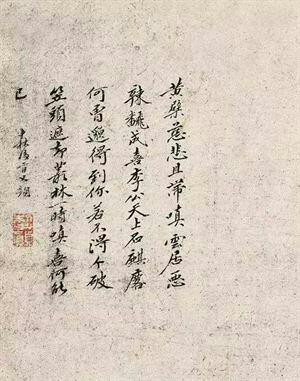 黄檗慈悲且帶嗔雲居惡
辣翻成喜李公天上石麒麐
何曾邈得到你若不得个破
笠頭遮却叢林一時嗔喜何能
已